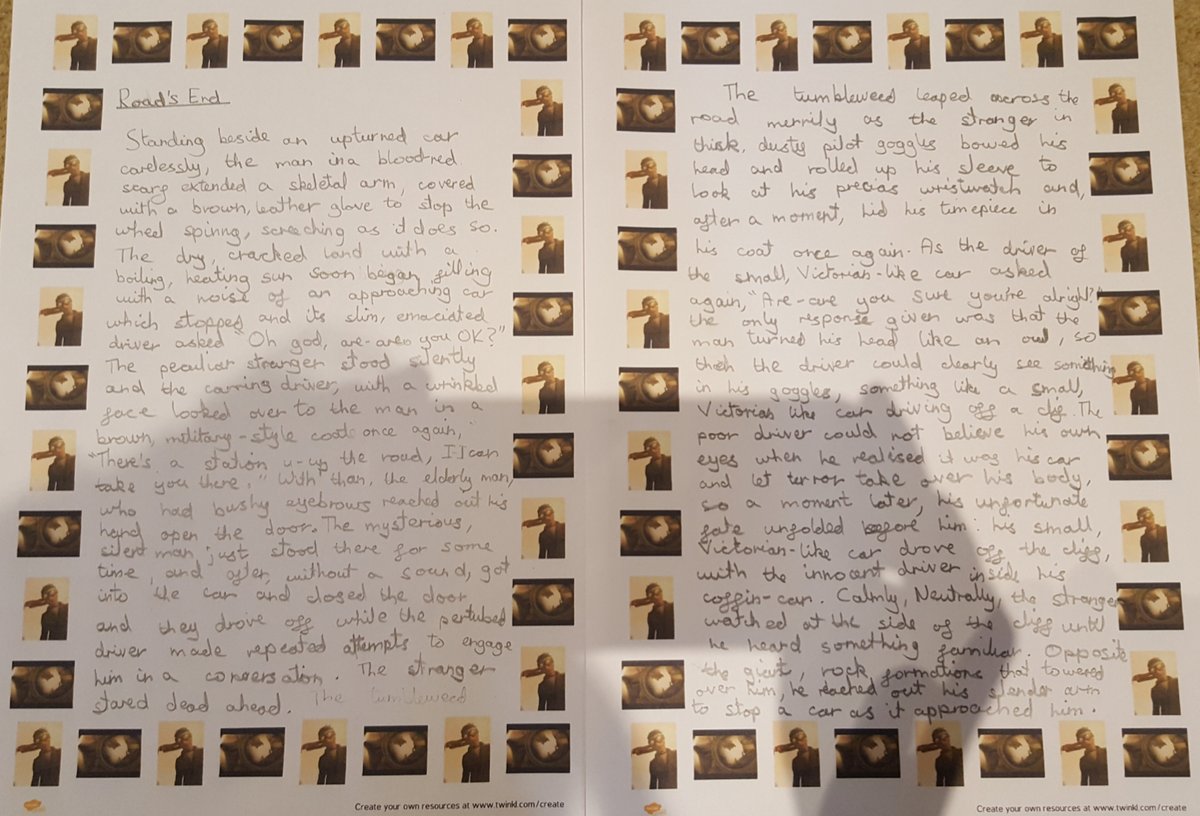 Road's End
Standing beside an upturned car
carelessly, the man in a blood-red
scarf extended a skeletal arm, covered
with a brown, leather glove to stop the
wheel spinng, screaching as it does so.
The dry, cracked land with a
boiling, heating sun soon began filling
with a noise of an approaching car
which stopped and its slim, emaciated
driver asked "Oh god, are-are you OK?"
The peculiar stranger stood silently
and the carring driver, with a wrinkled
face looked over to the man in a
brown, military-style coat once again,
"There's a station u-up the road, I-I can
take you there." With than, the elderly man,
who had bushy eyebrows reached out his
hand open the door. The mysterious,
silent man, just stood there for some
time, and after, without a sound, got
into the car and closed the door
and they drove off while the pertubed
driver made repeated attempts to engage
him in a conversation. The stranger
stared dead ahead. The tumbleweed
Create your own resources at www.twinkl.com/create
The tumbleweed leaped across the
road merrily as the stranger in
thisk, dusty pilot goggles bowed his
head and rolled up his sleeve to
look at his precias wristwatch and,
after a moment, hid his timepiece in
his coat once again. As the driver of
the small, Victorian-like car asked
again, "Are-are you sure you're alright?"
the only response given was that the
man turned his head like an owl, so
that the driver could clearly see something
in his goggles, something like a small,
Victorian like car driving off a cliff. The
poor driver could not believe his own
eyes when he realised it was his car
and let terror take over his body,
so a moment later, his unfortunate
fate unfolded before him: his small,
Victorian-like car drove off the cliff,
with the innocent driver inside his
coffin-car. Calmly, Neutrally, the stranger
watched at the side of the cliff until
he heard something familiar. Opposite
the giant, rock formations that towered
over him, he reached out his slender arm
to stop a car as it approached him.
Create your own resources at www.twinkl.com/create